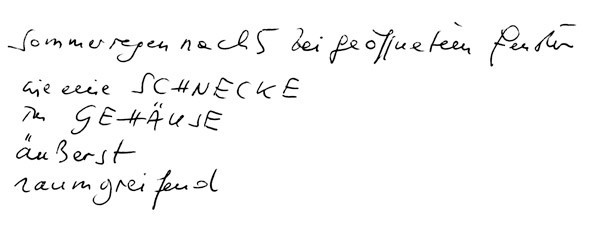 Sommerregen nach 5 bei geöffnetem Fenster
wie eine SCHNECKE
im GEHÄUSE
äußerst
raumgreifend